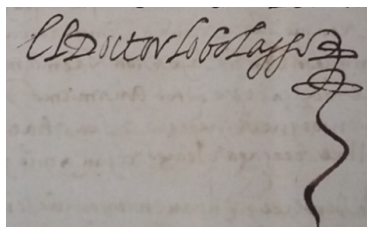 El Doctor Lobo Lasso